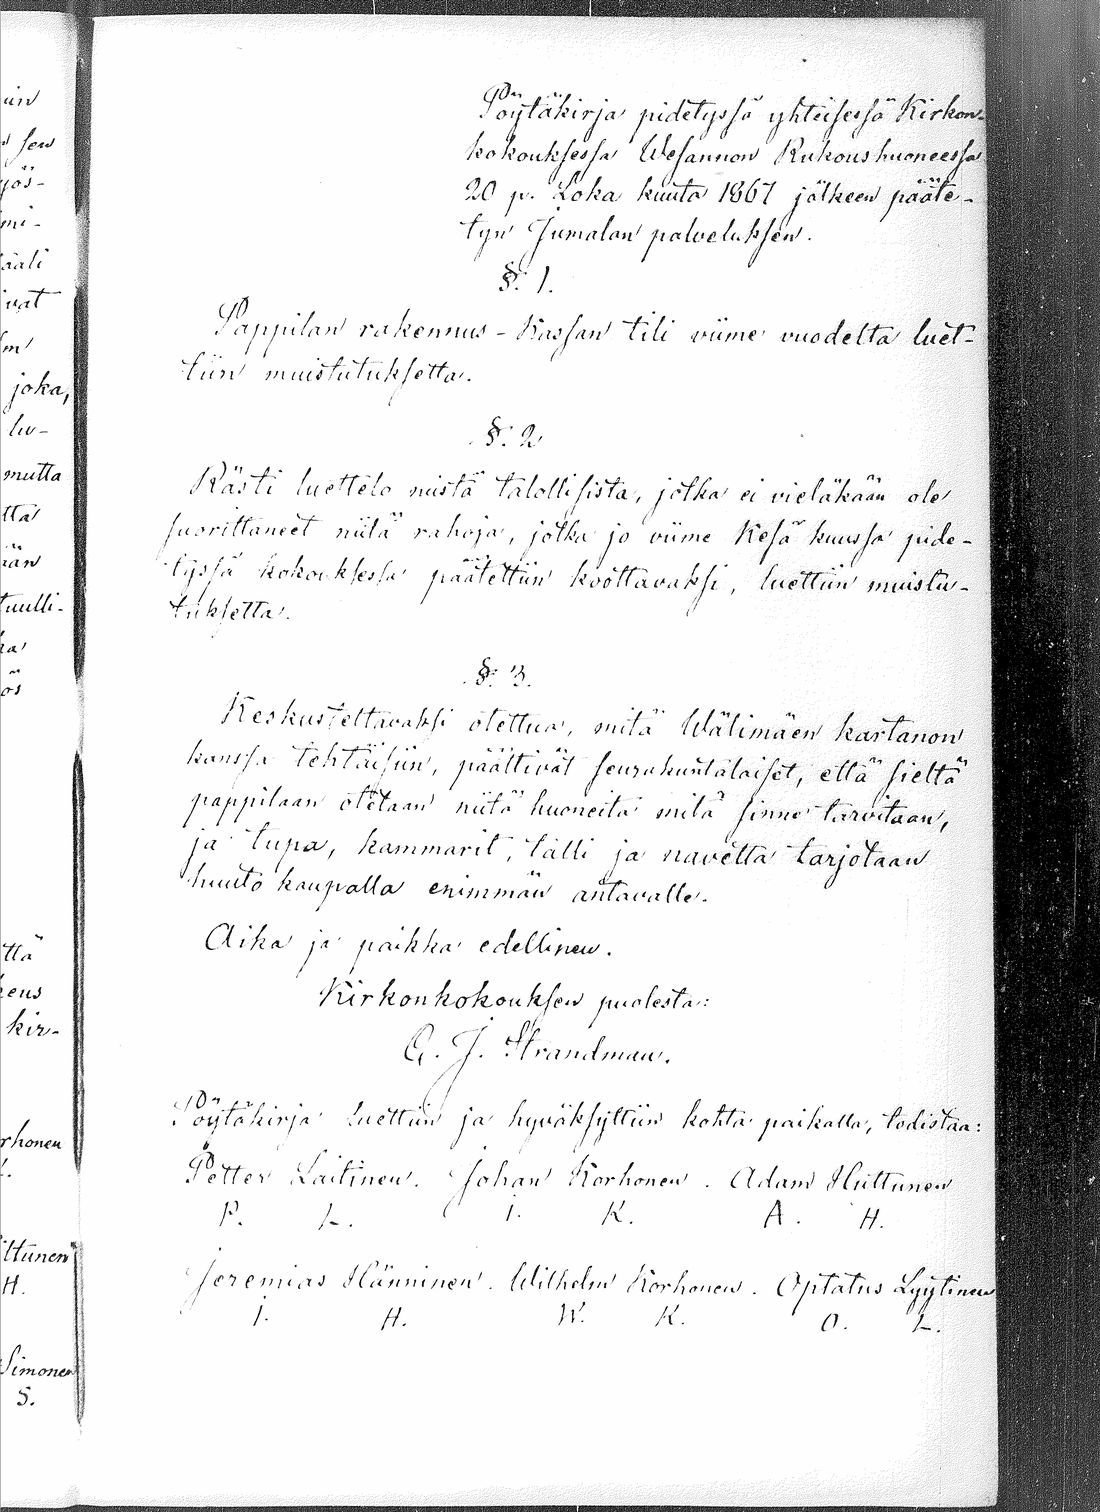 Pöytäkirja pidetyssä yhteisessä Kirkon-
kokouksessa Wesannon Rukoushuoneessa
20 p. Loka kuuta 1867 jälkeen pääte-
tyn Jumalan palveluksen.
§. 1.
Pappilan rakennus-Kassan tili viime vuodelta luet-
tiin muistutuksetta.
§. 2
Rästi luettelo niistä talollisista, jotka ei vieläkään ole
suorittaneet niitä rahoja, jotka jo viime Kesä kuussa pide-
tyssä kokouksessa päätettiin koottavaksi, luettiin muistu-
tuksetta.
§. 3.
Keskusteltavaksi otettua, mitä Wälimäen kartanon
kanssa tehtäisiin, päättivät seurakuntalaiset, että sieltä
pappilaan otetaan niitä huoneita mitä sinne tarvitaan,
ja tupa, kammarit, talli ja navetta tarjotaan
huuto kaupalla enimmän antavalle.
Aika ja paikka edellinen.
Kirkonkokouksen puolesta:
G. J. Strandman.
Pöytäkirja luettiin ja hyväksyttiin kohta paikalla, todistaa:
Petter Laitinen. Johan Korhonen. Adam Huttunen
P. L. I. K. A. H.
Jeremias Hänninen. Wilhelm Korhonen. Optatus Lyytinen
I. H. W. K. O. L.
joka,
mutta
kir-
Simonen
S.